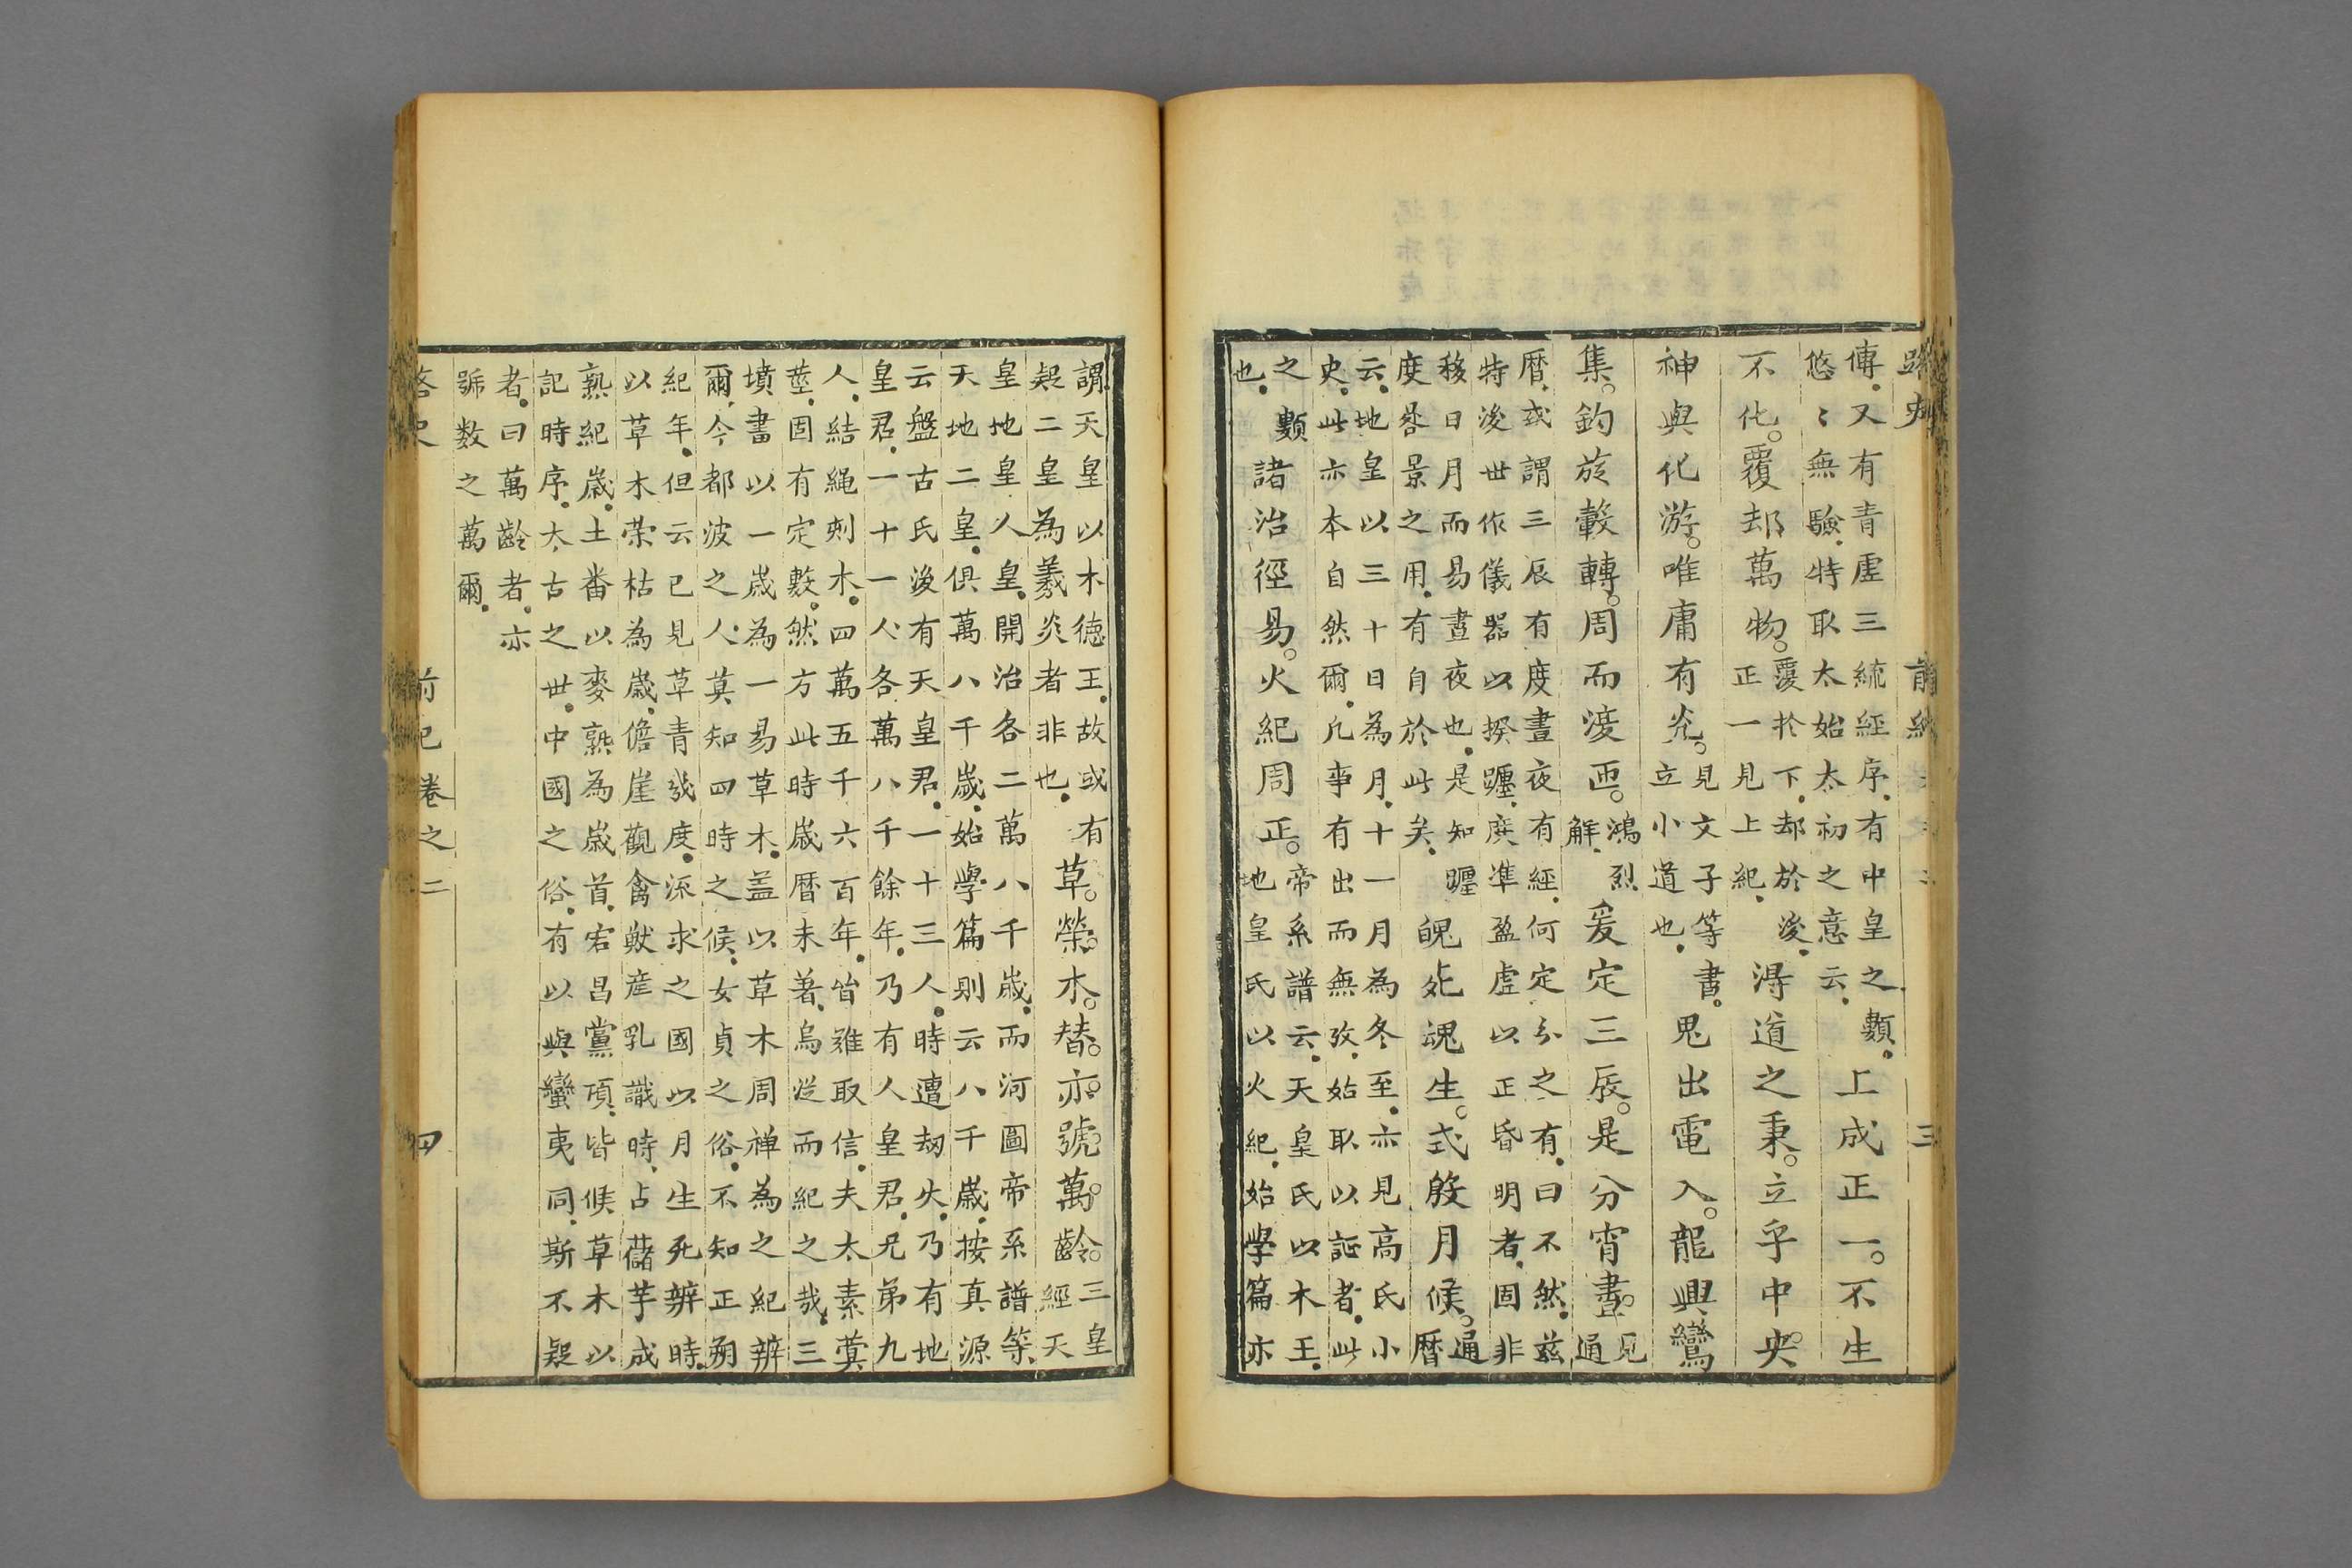 路史 前紀卷之二 三
傳．又有青虛三統經序．有中皇之類．
悠〻無驗．特取太始太初之意云．
上成正一。不生
不化。覆却萬物。
覆於下．却於後．
正一見上紀．
得道之秉。立乎中央。
神與化游。唯庸有光。
見文子等書．
立小道也．
鬼出電入。龍興鸞
集。鈞旋轂轉。周而復匝。
鴻烈
解．
爰定三辰。是分宵晝。
見
通
曆．或謂三辰有度晝夜有經．何定分之有．曰不然．兹
特後世作儀器以揆躔．度準盈虛以正昏明者．固非
移日月而易晝夜也．是知躔
度晷景之用．有自於此矣．
魄死魂生。式殷月候。
通
曆
云．地皇以三十日為月．十一月為冬至．亦見高氏小
史．此亦本自然爾．凡事有出而無攷．始取以証者．此
之類
也．
諸治徑易。火紀周正。
帝系譜云．天皇氏以木王．
地皇氏以火紀．始學篇亦
謂天皇以木德王．故或有
疑二皇為羲炎者非也．
草。榮。木。替。亦。號。萬。齡。
三皇
經天
皇地皇人皇．開治各二萬八千歲．而河圖帝系譜等．
天地二皇．俱萬八千歲．始學篇則云八千歲．按真源
云盤古氏後有天皇君．一十三人．時遭劫火．乃有地
皇君．一十一人．各萬八千餘年．乃有人皇君．兄弟九
人．結繩刻木．四萬五千六百年．皆難取信．夫太素蓂
莖．固有定數．然方此時歲曆未著．烏從而紀之哉．三
墳書以一歲為一易草木．葢以草木周禅為之紀辨
爾．今都波之人．莫知四時之候．女貞之俗．不知正朔
紀年．但云已見草青幾度．流求之國以月生死辨時．
以草木荣枯為歲．儋崖觀禽獣産乳識時．占藷芋成
熟紀歲．土番以麥熟為歲首．宕昌黨項．皆候草木以
記時序．太古之世．中國之俗．有以與蠻夷同．斯不疑
者．曰萬齡者．亦
號数之萬爾．
路史 前紀卷之二 四